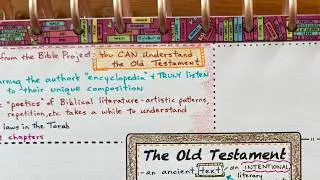 from the Bible Project:
You CAN understand
the Old Testament
arning the author's "encyclopedia" & TRULY listen
to their unique composition
e "poetics" of Biblical literature - artistic patterns,
repetition, etc. takes a while to understand
laws in the Torah
chapters
The Old Testament
- an ancient text - an INTENTIONAL
literary